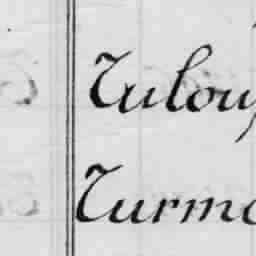 Tulou
Turm